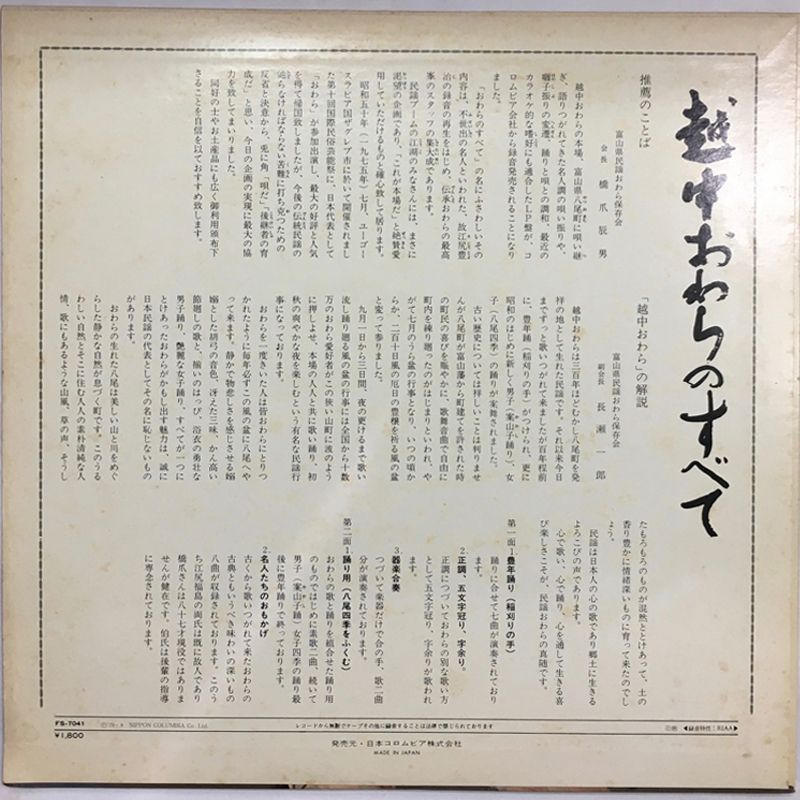 越中おわらのすべて
推薦のことば
富山県民謡おわら保存会
会長 橋爪辰男
越中おわらの本場、富山県八尾町に唄い継
ぎ、語りつがれてきた名人調の唄い振りや、
囃子振りの変遷、踊りと唄との調和、最近の
カラオケ的な嗜好にも適合したLP盤が、コ
ロムビア会社から録音発売されることになり
ました。
「おわらのすべて」の名にふさわしいその
内容は、不世出の名人といわれた、故江尻豊
治の録音の再生をはじめ、伝承おわらの最高
峯のスタッフの集大成であります。
民謡ブームの江湖のみなさんには、まさに
渇望の企画であり、「これが本場だ」と絶賛愛
用していただけるものと確心致して居ります。
昭和五十年(一九七五年)七月、ユーゴー
スラビア国ザグレブ市に於いて開催されまし
た第十回国際民俗芸能祭に、日本代表として
「おわら」が参加出演し、最大の好評と人気
を得て帰国致しましたが、今後の伝統民謡の
辿らなければならない苦難に打ち克つための
反省と決意から、兎に角「唄だ」「後継者の育
成だ」と思い、今日の企画の実現に最大の協
力を致してまいりました。
同好の士やお土産品にも広く御利用頒布下
さることを自信を以ておすすめ致します。
「越中おわら」の解説
富山県民謡おわら保存会
副会長 長瀬一郎
越中おわらは三百年ほどむかし八尾町を発
祥の地として生れた民謡です。それ以来今日
まですっと歌いつがれて来ましたが百年程前
に、豊年踊(稲刈りの手)がつけられ、更に
昭和のはじめに新しく男子(案山子踊)、女
子(八尾四季)の踊りが案舞されました。
古い歴史については詳しいことは判りませ
んが八尾町が富山藩から町建てを許された時
の町民の喜びを賑やかに、歌舞音曲で自由に
町内を練り廻ったのがはじまりといわれ、や
がて七月のうら盆の行事となり、いつの頃か
らか、二百十日風の厄日の豊穣を祈る風の盆
と変って参りました。
九月一日から三日間、夜の更けるまで歌い
流し踊り廻る風の盆の行事には全国から十数
万のおわら愛好者がこの狭い山町に波のよう
に押しよせ、本場の人人と共に歌い踊り、初
秋の爽やかな夜を楽しむという有名な民謡行
事になっております。
おわらを一度きいた人は皆おわらにとりつ
かれたように毎年必ずこの風の盆に八尾へや
って来ます。静かで物悲しさを感じさせる嫋
嫋とした胡弓の音色、冴えた三味、かん高い
節廻しの歌と、揃いのはっぴ、浴衣の勇壮な
男子踊り、艶麗な女子踊り、すべてが一つに
とけあったおわらがかもし出す魅力は、誠に
日本民謡の代表としてその名に恥じないもの
があります。
おわらの生れた八尾は美しい山と川をめぐ
らした静かな自然が息づく町です。このうる
わしい自然とそこに住む人人の素朴清純な人
情、歌にもあるような山風、草の声、そうし
たもろもろのものが混然ととけあって、土の
香り豊かに情緒深いものに育って来たのでし
ょう。
民謡は日本人の心の歌であり郷土に生きる
よろこびの声であります。
心で歌い、心で踊り、心を通して生きる喜
び楽しさこそが、民謡おわらの真随です。
第一面 1.豊年踊り(稲刈りの手)
踊りに合せて七曲が演奏されており
ます。
2.正調、五文字冠り、字余り。
正調につづいておわらの別な歌い方
として五文字冠り、字余りが歌われ
ます。
3.器楽合奏
つづいて楽器だけで合の手、歌二曲
分が演奏されております。
第二面 1.踊り用(八尾四季をふくむ)
おわらの歌と踊りを組合せた踊り用
のものではじめに素歌二曲、続いて
男子(案山子踊)女子四季の踊り最
後に豊年踊りで終っております。
2.名人たちのおもかげ
古くから歌いつがれて来たおわらの
古典ともいうべき味わいの深いもの
八曲が収録されております。このう
ち江尻福島の両氏は既に故人であり
橋爪さんは八十七才現役ではありま
せんが健在です。伯氏は後輩の指導
に専念されております。
FS-7041
¥1,800
NIPPON COLUMBIA Co. Ltd.
レコードから無断でテープその他に録音することは法律で禁じられております
◀録音特性:RIAA▶
発売元・日本コロムビア株式会社
MADE IN JAPAN